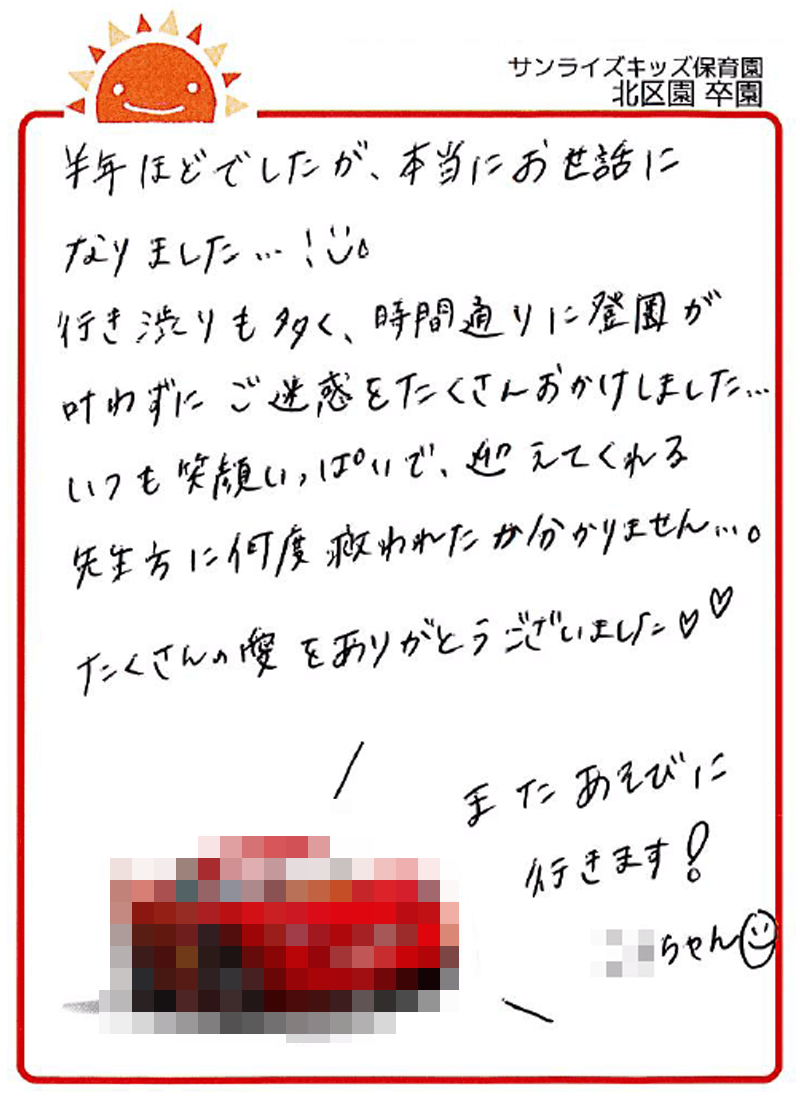 サンライズキッズ保育園
北区園 卒園
半年ほどでしたが、本当にお世話に
なりました…!
行き渋りも多く、時間通りに登園が
叶わずにご迷惑をたくさんおかけしました…
いつも笑顔いっぱいで、迎えてくれる
先生方に何度救われたか分かりません…。
たくさんの愛をありがとうございました♡♡
またあそびに
行きます!
ちゃん